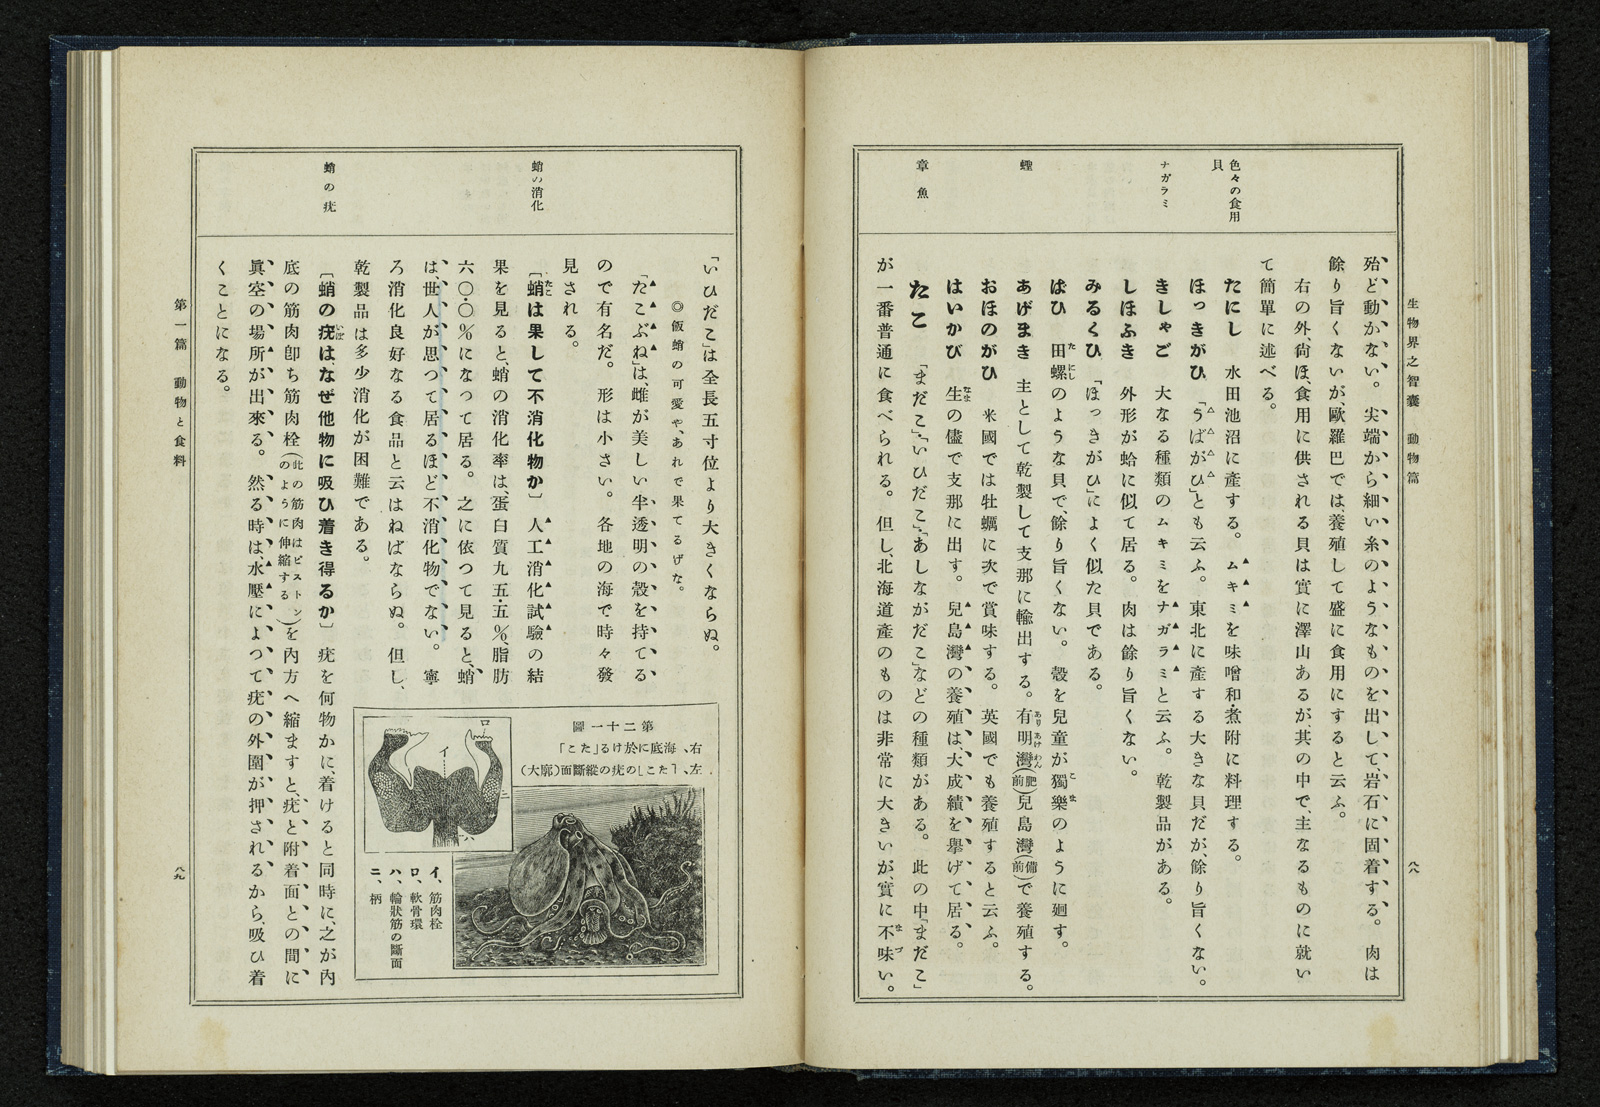 生物界之智囊　動物篇
八八
色々の食用
貝
ナガラミ
蟶
章魚
殆ど動かない。尖端から細い糸のようなものを出して、岩石に固着する。肉は
餘り旨くないが、歐羅巴では、養殖して盛に食用にすると云ふ。
右の外、尙ほ、食用に供される貝は實に澤山あるが、其の中で、主なるものに就い
て簡單に述べる。
たにし　水田池沼に產する。ムキミを味噌和・煮附に料理する。
ほっきがひ　「うばがひ」とも云ふ。東北に產する大きな貝だが、餘り旨くない。
きしゃご　大なる種類のムキミをナガラミと云ふ。乾製品がある。
しほふき　外形が蛤に似て居る。肉は餘り旨くない。
みるくひ　「ほっきがひ」によく似た貝である。
ばひ　田螺のような貝で、餘り旨くない。殼を兒童が獨樂のように廻す。
あげまき　主として乾製して支那に輸出する。有明灣(肥前)兒島灣(備前)で養殖する。
おほのがひ　米國では牡蠣に次で賞味する。英國でも養殖すると云ふ。
はいかび　生の儘で支那に出す。兒島灣の養殖は、大成績を擧げて居る。
たこ　「まだこ」・「いひだこ」・「あしながだこ」などの種類がある。此の中「まだこ」
が一番普通に食べられる。但し、北海道產のものは非常に大きいが、實に不味い。
蛸の消化
蛸の疣
「いひだこ」は全長五寸位より大きくならぬ。
◎飯蛸の可愛や、あれで果てるげな。
「たこぶね」は、雌が美しい半透明の殼を持てる
ので有名だ。形は小さい。各地の海で時々發
見される。
〔蛸は果して不消化物か〕　人工消化試驗の結
果を見ると、蛸の消化率は、蛋白質九五・五%、脂肪
六〇・〇%になって居る。之に依つて見ると、蛸
は、世人が思つて居るほど不消化物でない。寧
ろ消化良好なる食品と云はねばならぬ。但し、
乾製品は多少消化が困難である。
〔蛸の疣は、なぜ他物に吸ひ着き得るか〕　疣を何物かに、着けると同時に、之が內
底の筋肉卽ち筋肉栓(此の筋肉はピストンのように伸縮する)を內方へ縮ますと、疣と附着面との間に
眞空の場所が出來る。然る時は、水壓によつて疣の外圍が押されるから、吸ひ着
くことになる。
第二十一圖
右、海底に於ける「たこ」
左、「たこ」の疣の縱斷面(廓大)
イ
ロ
ハ
ニ
イ、筋肉栓
ロ、軟骨環
ハ、輪狀筋の斷面
ニ、柄
第一篇　動物と食料
八九